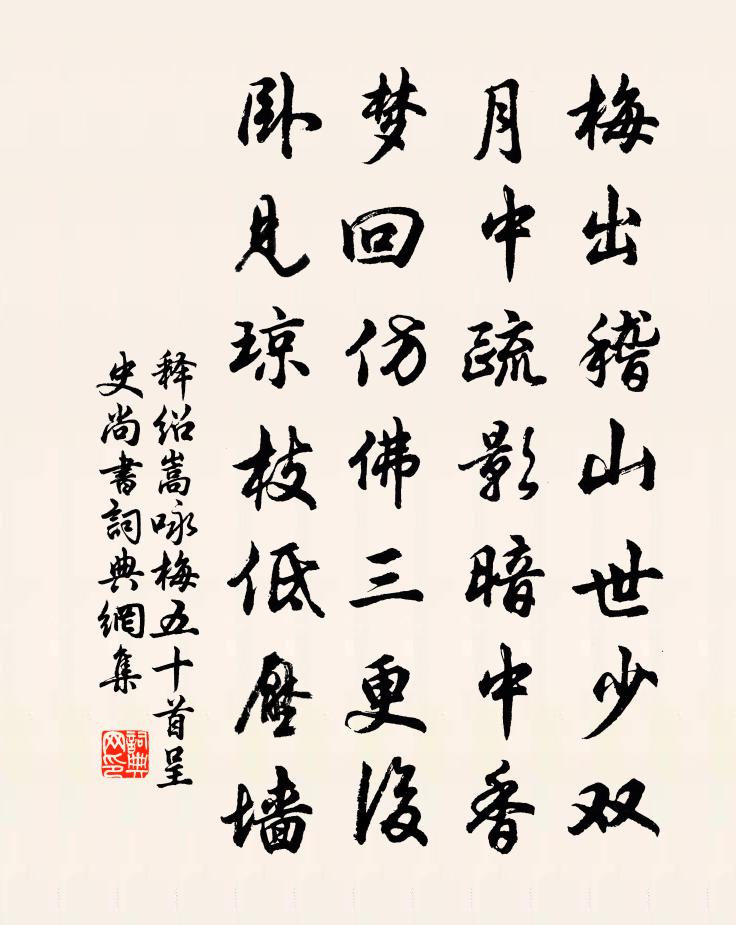 梅出稽山世少双
月中疏影暗中香
梦回仿佛三更後
卧见琼枝低壓墙
释绍嵩咏梅五十首呈
史尚書詞典網集
詞典
网印